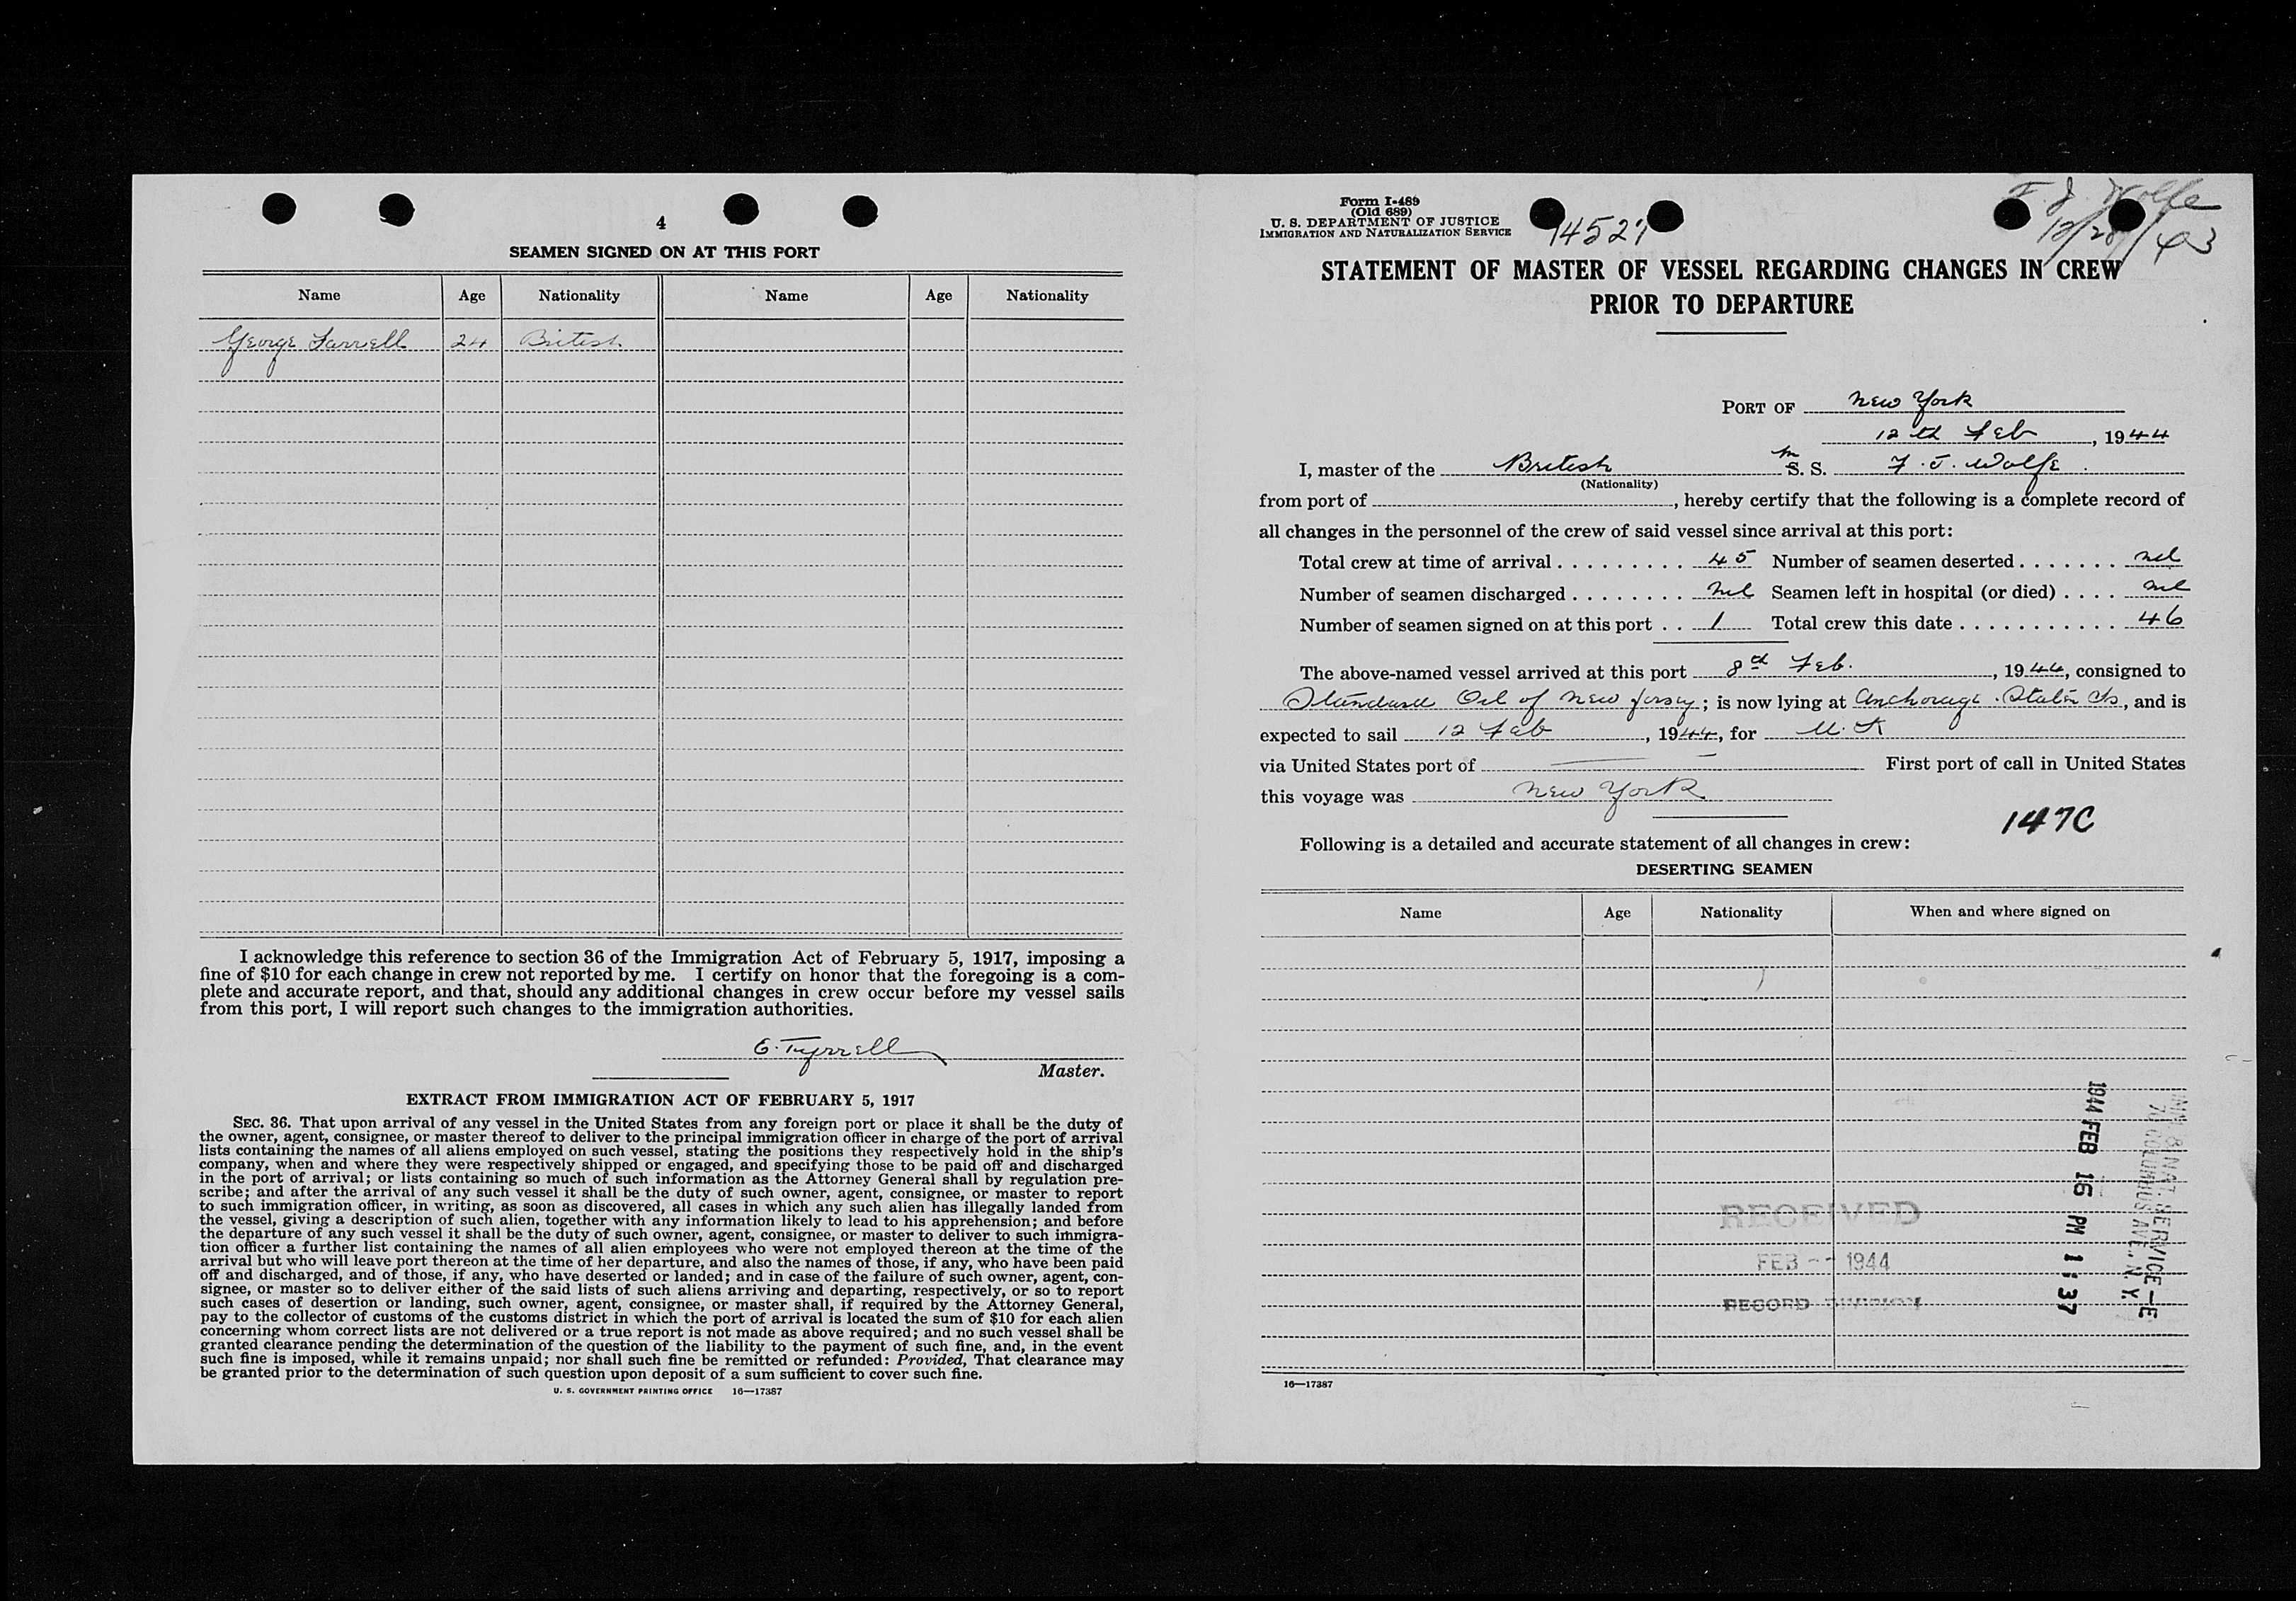 4
SEAMEN SIGNED ON AT THIS PORT
Name Age Nationality Name Age Nationality
George Farrell 24 British
I acknowledge this reference to section 36 of the Immigration Act of February 5, 1917, imposing a
fine of $10 for each change in crew not reported by me. I certify on honor that the foregoing is a com-
plete and accurate report, and that, should any additional changes in crew occur before my vessel sails
from this port, I will report such changes to the immigration authorities.
G. Tyrrell
Master.
EXTRACT FROM IMMIGRATION ACT OF FEBRUARY 5, 1917
SEC. 36. That upon arrival of any vessel in the United States from any foreign port or place it shall be the duty of
the owner, agent, consignee, or master thereof to deliver to the principal immigration officer in charge of the port of arrival
lists containing the names of all aliens employed on such vessel, stating the positions they respectively hold in the ship's
company, when and where they were respectively shipped or engaged, and specifying those to be paid off and discharged
in the port of arrival; or lists containing so much of such information as the Attorney General shall by regulation pre-
scribe; and after the arrival of any such vessel it shall be the duty of such owner, agent, consignee, or master to report
to such immigration officer, in writing, as soon as discovered, all cases in which any such alien has illegally landed from
the vessel, giving a description of such alien, together with any information likely to lead to his apprehension; and before
the departure of any such vessel it shall be the duty of such owner, agent, consignee, or master to deliver to such immigra-
tion officer a further list containing the names of all alien employees who were not employed thereon at the time of the
arrival but who will leave port thereon at the time of her departure, and also the names of those, if any, who have been paid
off and discharged, and of those, if any, who have deserted or landed; and in case of the failure of such owner, agent, con-
signee, or master so to deliver either of the said lists of such aliens arriving and departing, respectively, or so to report
such cases of desertion or landing, such owner, agent, consignee, or master shall, if required by the Attorney General,
pay to the collector of customs of the customs district in which the port of arrival is located the sum of $10 for each alien
concerning whom correct lists are not delivered or a true report is not made as above required; and no such vessel shall be
granted clearance pending the determination of the question of the liability to the payment of such fine, and, in the event
such fine is imposed, while it remains unpaid; nor shall such fine be remitted or refunded: Provided, That clearance may
be granted prior to the determination of such question upon deposit of a sum sufficient to cover such fine.
U. S. GOVERNMENT PRINTING OFFICE 16—17387
Form I-489
(Old 689)
U. S. DEPARTMENT OF JUSTICE
IMMIGRATION AND NATURALIZATION SERVICE
14521
F. J. Wolfe
12/28/43
STATEMENT OF MASTER OF VESSEL REGARDING CHANGES IN CREW
PRIOR TO DEPARTURE
PORT OF New York
12th Feb, 1944
I, master of the British m S. S. F. J. Wolfe
(Nationality)
from port of , hereby certify that the following is a complete record of
all changes in the personnel of the crew of said vessel since arrival at this port:
Total crew at time of arrival . . . . . . . . . 45 Number of seamen deserted . . . . . . . nil
Number of seamen discharged . . . . . . . . Nil Seamen left in hospital (or died) . . . . nil
Number of seamen signed on at this port . . 1 Total crew this date . . . . . . . . . . . . 46
The above-named vessel arrived at this port 8th Feb. , 1944, consigned to
Standard Oil of New Jersey; is now lying at Anchorage Staten Is, and is
expected to sail 12 Feb , 1944, for U. K
via United States port of — First port of call in United States
this voyage was New York
147C
Following is a detailed and accurate statement of all changes in crew:
DESERTING SEAMEN
Name Age Nationality When and where signed on
1944 FEB 16 PM 1:37
IMM. & NAT. SERVICE—E
70 COLUMBUS AVE., N. Y.
RECEIVED
FEB - - 1944
RECORD DIVISION
16—17387